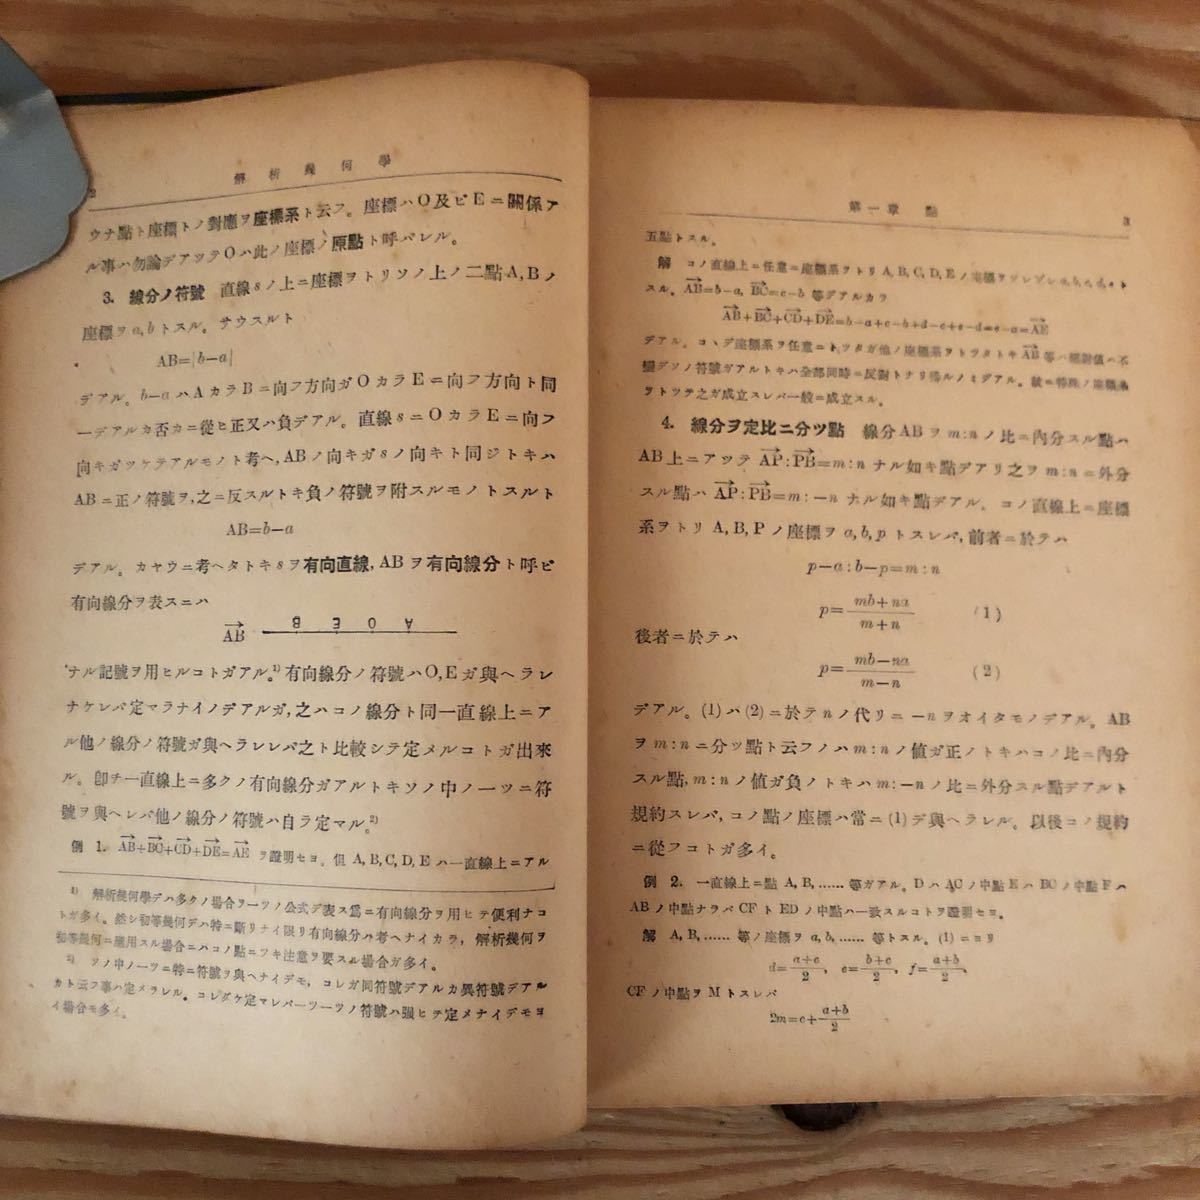 2
解析幾何學
ウナ點ト座標トノ對應ヲ座標系ト云フ。座標ハO及ビEニ關係ア
ル事ハ勿論デアツテOハ此ノ座標ノ原點ト呼バレル。
3. 線分ノ符號 直線sノ上ニ座標ヲトリソノ上ノ二點A,Bノ
座標ヲa,bトスル。サウスルト
AB=|b-a|
デアル。b-aハAカラBニ向フ方向ガOカラEニ向フ方向ト同
一デアルカ否カニ從ヒ正又ハ負デアル。直線sニOカラEニ向フ
向キガツケテアルモノト考ヘ,ABノ向キガsノ向キト同ジトキハ
ABニ正ノ符號ヲ,之ニ反スルトキ負ノ符號ヲ附スルモノトスルト
AB=b-a
デアル。カヤウニ考ヘタトキsヲ有向直線,ABヲ有向線分ト呼ビ
有向線分ヲ表スニハ
B E O A
AB
ナル記號ヲ用ヒルコトガアル。1)有向線分ノ符號ハO,Eガ與ヘラレ
ナケレバ定マラナイノデアルガ,之ハコノ線分ト同一直線上ニア
ル他ノ線分ノ符號ガ與ヘラレレバ之ト比較シテ定メルコトガ出來
ル。卽チ一直線上ニ多クノ有向線分ガアルトキソノ中ノ一ツニ符
號ヲ與ヘレバ他ノ線分ノ符號ハ自ラ定マル。2)
例 1. AB+BC+CD+DE=AE ヲ證明セヨ。但 A,B,C,D,E ハ一直線上ニアル
1) 解析幾何學デハ多クノ場合ヲ一ツノ公式デ表ス爲ニ有向線分ヲ用ヒテ便利ナコ
トガ多イ。然シ初等幾何デハ特ニ斷リナイ限リ有向線分ハ考ヘナイカラ,解析幾何ヲ
初等幾何ニ應用スル場合ニハコノ點ニツキ注意ヲ要スル場合ガ多イ。
2) ソノ中ノ一ツニ特ニ符號ヲ與ヘナイデモ,コレガ同符號デアルカ異符號デアル
カト云フ事ハ定メラレル。コレダケ定マレバ一ツ一ツノ符號ハ强ヒテ定メナイデモヨ
イ場合モ多イ。
第一章 點
3
五點トスル。
解 コノ直線上ニ任意ニ座標系ヲトリ A,B,C,D,E ノ座標ヲソレゾレ a,b,c,d,e ト
スル。AB=b-a, BC=c-b 等デアルカラ
AB+BC+CD+DE=b-a+c-b+d-c+e-d=e-a=AE
デアル。コヽデ座標系ヲ任意ニトツタガ他ノ座標系ヲトツタトキ AB 等ハ絕對値ハ不
變デソノ符號ガアルトキハ全部同時ニ反對トナリ得ルノミデアル。故ニ特殊ノ座標系
ヲトツテ之ガ成立スレバ一般ニ成立スル。
4. 線分ヲ定比ニ分ツ點 線分ABヲm:nノ比ニ內分スル點ハ
AB上ニアツテ AP:PB=m:n ナル如キ點デアリ之ヲm:nニ外分
スル點ハ AP:PB=m:-n ナル如キ點デアル。コノ直線上ニ座標
系ヲトリ A,B,P ノ座標ヲ a,b,p トスレバ,前者ニ於テハ
p-a:b-p=m:n
p=\frac{mb+na}{m+n} (1)
後者ニ於テハ
p=\frac{mb-na}{m-n} (2)
デアル。(1)ハ(2)ニ於テnノ代リニ-nヲオイタモノデアル。AB
ヲm:nニ分ツ點ト云フノハm:nノ値ガ正ノトキハコノ比ニ內分
スル點,m:nノ値ガ負ノトキハm:-nノ比ニ外分スル點デアルト
規約スレバ,コノ點ノ座標ハ常ニ(1)デ與ヘラレル。以後コノ規約
ニ從フコトガ多イ。
例 2. 一直線上ニ點 A,B,…… 等ガアル。D ハ AC ノ中點 E ハ BC ノ中點 F ハ
AB ノ中點ナラバ CF ト ED ノ中點ハ一致スルコトヲ證明セヨ。
解 A,B,…… 等ノ座標ヲ a,b,…… 等トスル。(1)ニヨリ
d=\frac{a+c}{2}, e=\frac{b+c}{2}, f=\frac{a+b}{2},
CF ノ中點ヲ M トスレバ
2m=c+\frac{a+b}{2}